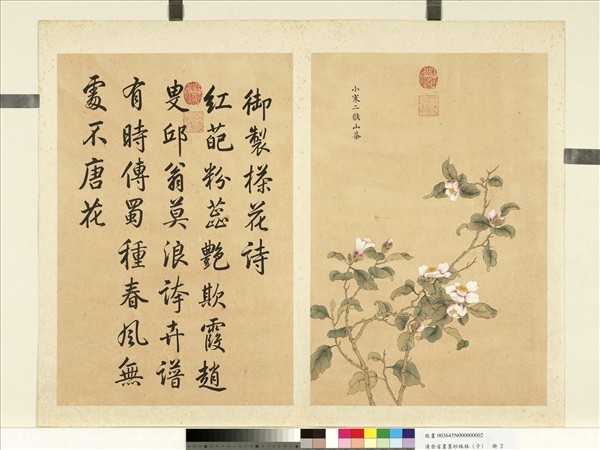 小寒二候山茶
御製花詩
紅葩粉蕊艷欺霞趙
叟邱翁莫浪誇卉譜
有時傳蜀種春風無
處不唐花
故畫 003645N000000002
墨妙珠林（子） 2